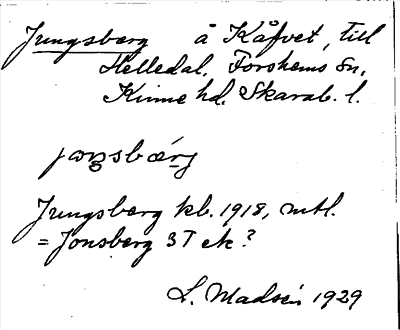 Jungsberg å Kåfvet, till
Helledal, Forshems Sn,
Kinne hd. Skarab. l.
Jungsberg kb. 1918, mtl.
= Jonsberg ST ek?
L. Madsén 1929